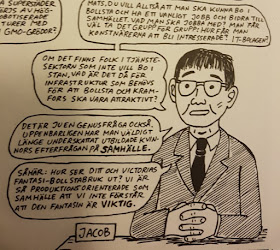 A SUPERSTÄDER
ERJS AV HEG-
ROBOTISERADE
TURERS HEM
I GMO-GREDOR?
MATS, DU VILL ALLTSÅ ATT MAN SKA KUNNA BO I
BOLLSTA OCH HA ETT VANLIGT JOBB OCH BIDRA TILL
SAMHÄLLET. VAD MAN SKA JOBBA MED? MAN FÅR
VÄL TA DET GRUPP FÖR GRUPP: HUR FÅR MAN
KONSTNÄRERNA ATT BLI INTRESSERADE? IT-BOLAGEN?
OM DET FINNS FOLK I TJÄNSTE-
SEKTORN SOM INTE VILL BO I
STAN, VAD ÄR DET DÅ FÖR
INFRASTRUKTUR SOM BEHÖVS
FÖR ATT BOLLSTA OCH KRAM-
FORS SKA VARA ATTRAKTIVT?
DET ÄR JU EN GENUSFRÅGA OCKSÅ.
UPPENBARLIGEN HAR MAN VÄLDIGT
LÄNGE UNDERSKATTAT UTBILDADE KVIN-
NORS EFTERFRÅGAN PÅ SAMHÄLLE.
SÅHÄR: HUR SER DITT OCH VICTORIAS
FANTASI-BOLLSTABRUK UT? VI ÄR
SÅ PRODUKTIONSORIENTERADE SOM
SAMHÄLLE ATT VI INTE FÖRSTÅR
ATT DEN FANTASIN ÄR VIKTIG.
JACOB